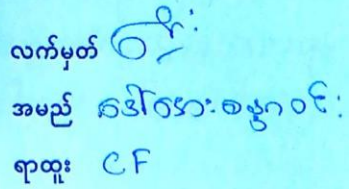 လက်မှတ်
အမည် ဒေါ်အေးစန္ဒာဝင်း
ရာထူး CF